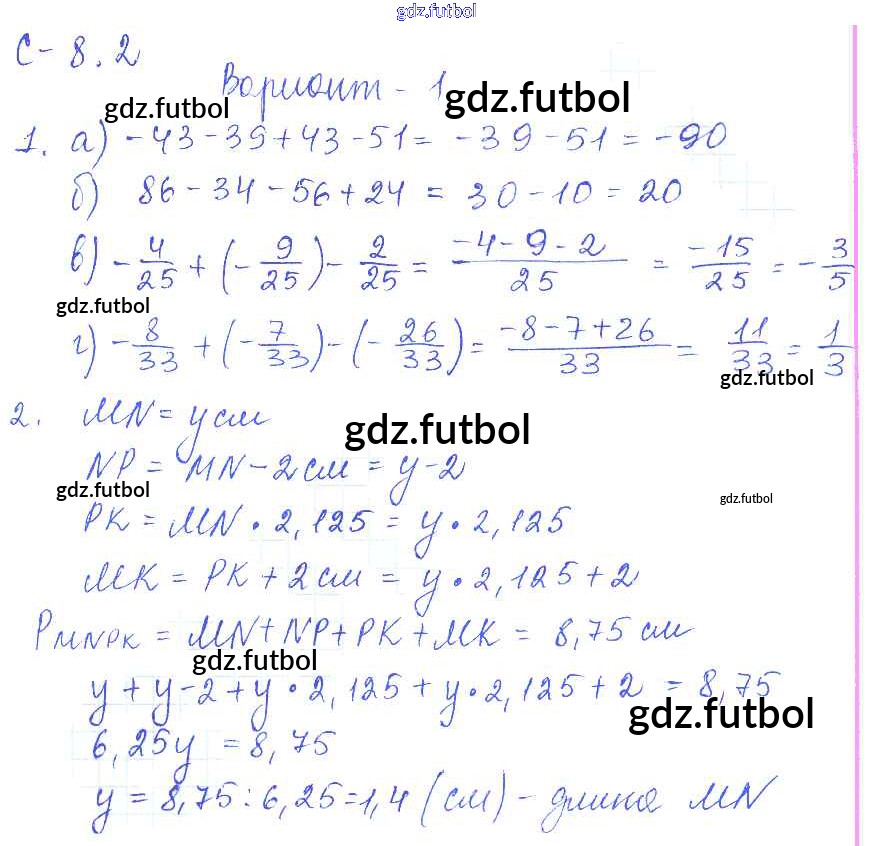 gdz.futbol
С-8.2
Вариант - 1
gdz.futbol gdz.futbol
1. а) -43-39+43-51= -39-51=-90
б) 86-34-56+24 = 30-10=20
в) -4/25+(-9/25)-2/25= (-4-9-2)/25 = -15/25=-3/5
gdz.futbol
г) -8/33+(-7/33)-(-26/33)= (-8-7+26)/33= 11/33=1/3
gdz.futbol
2. MN=y см
gdz.futbol
NP=MN-2см=y-2
gdz.futbol gdz.futbol
PK=MN·2,125=y·2,125
MK=PK+2см=y·2,125+2
PMNPK=MN+NP+PK+MK=8,75 см
gdz.futbol
y+y-2+y·2,125+y·2,125+2=8,75
gdz.futbol
6,25y=8,75
y=8,75:6,25=1,4(см)-длина MN